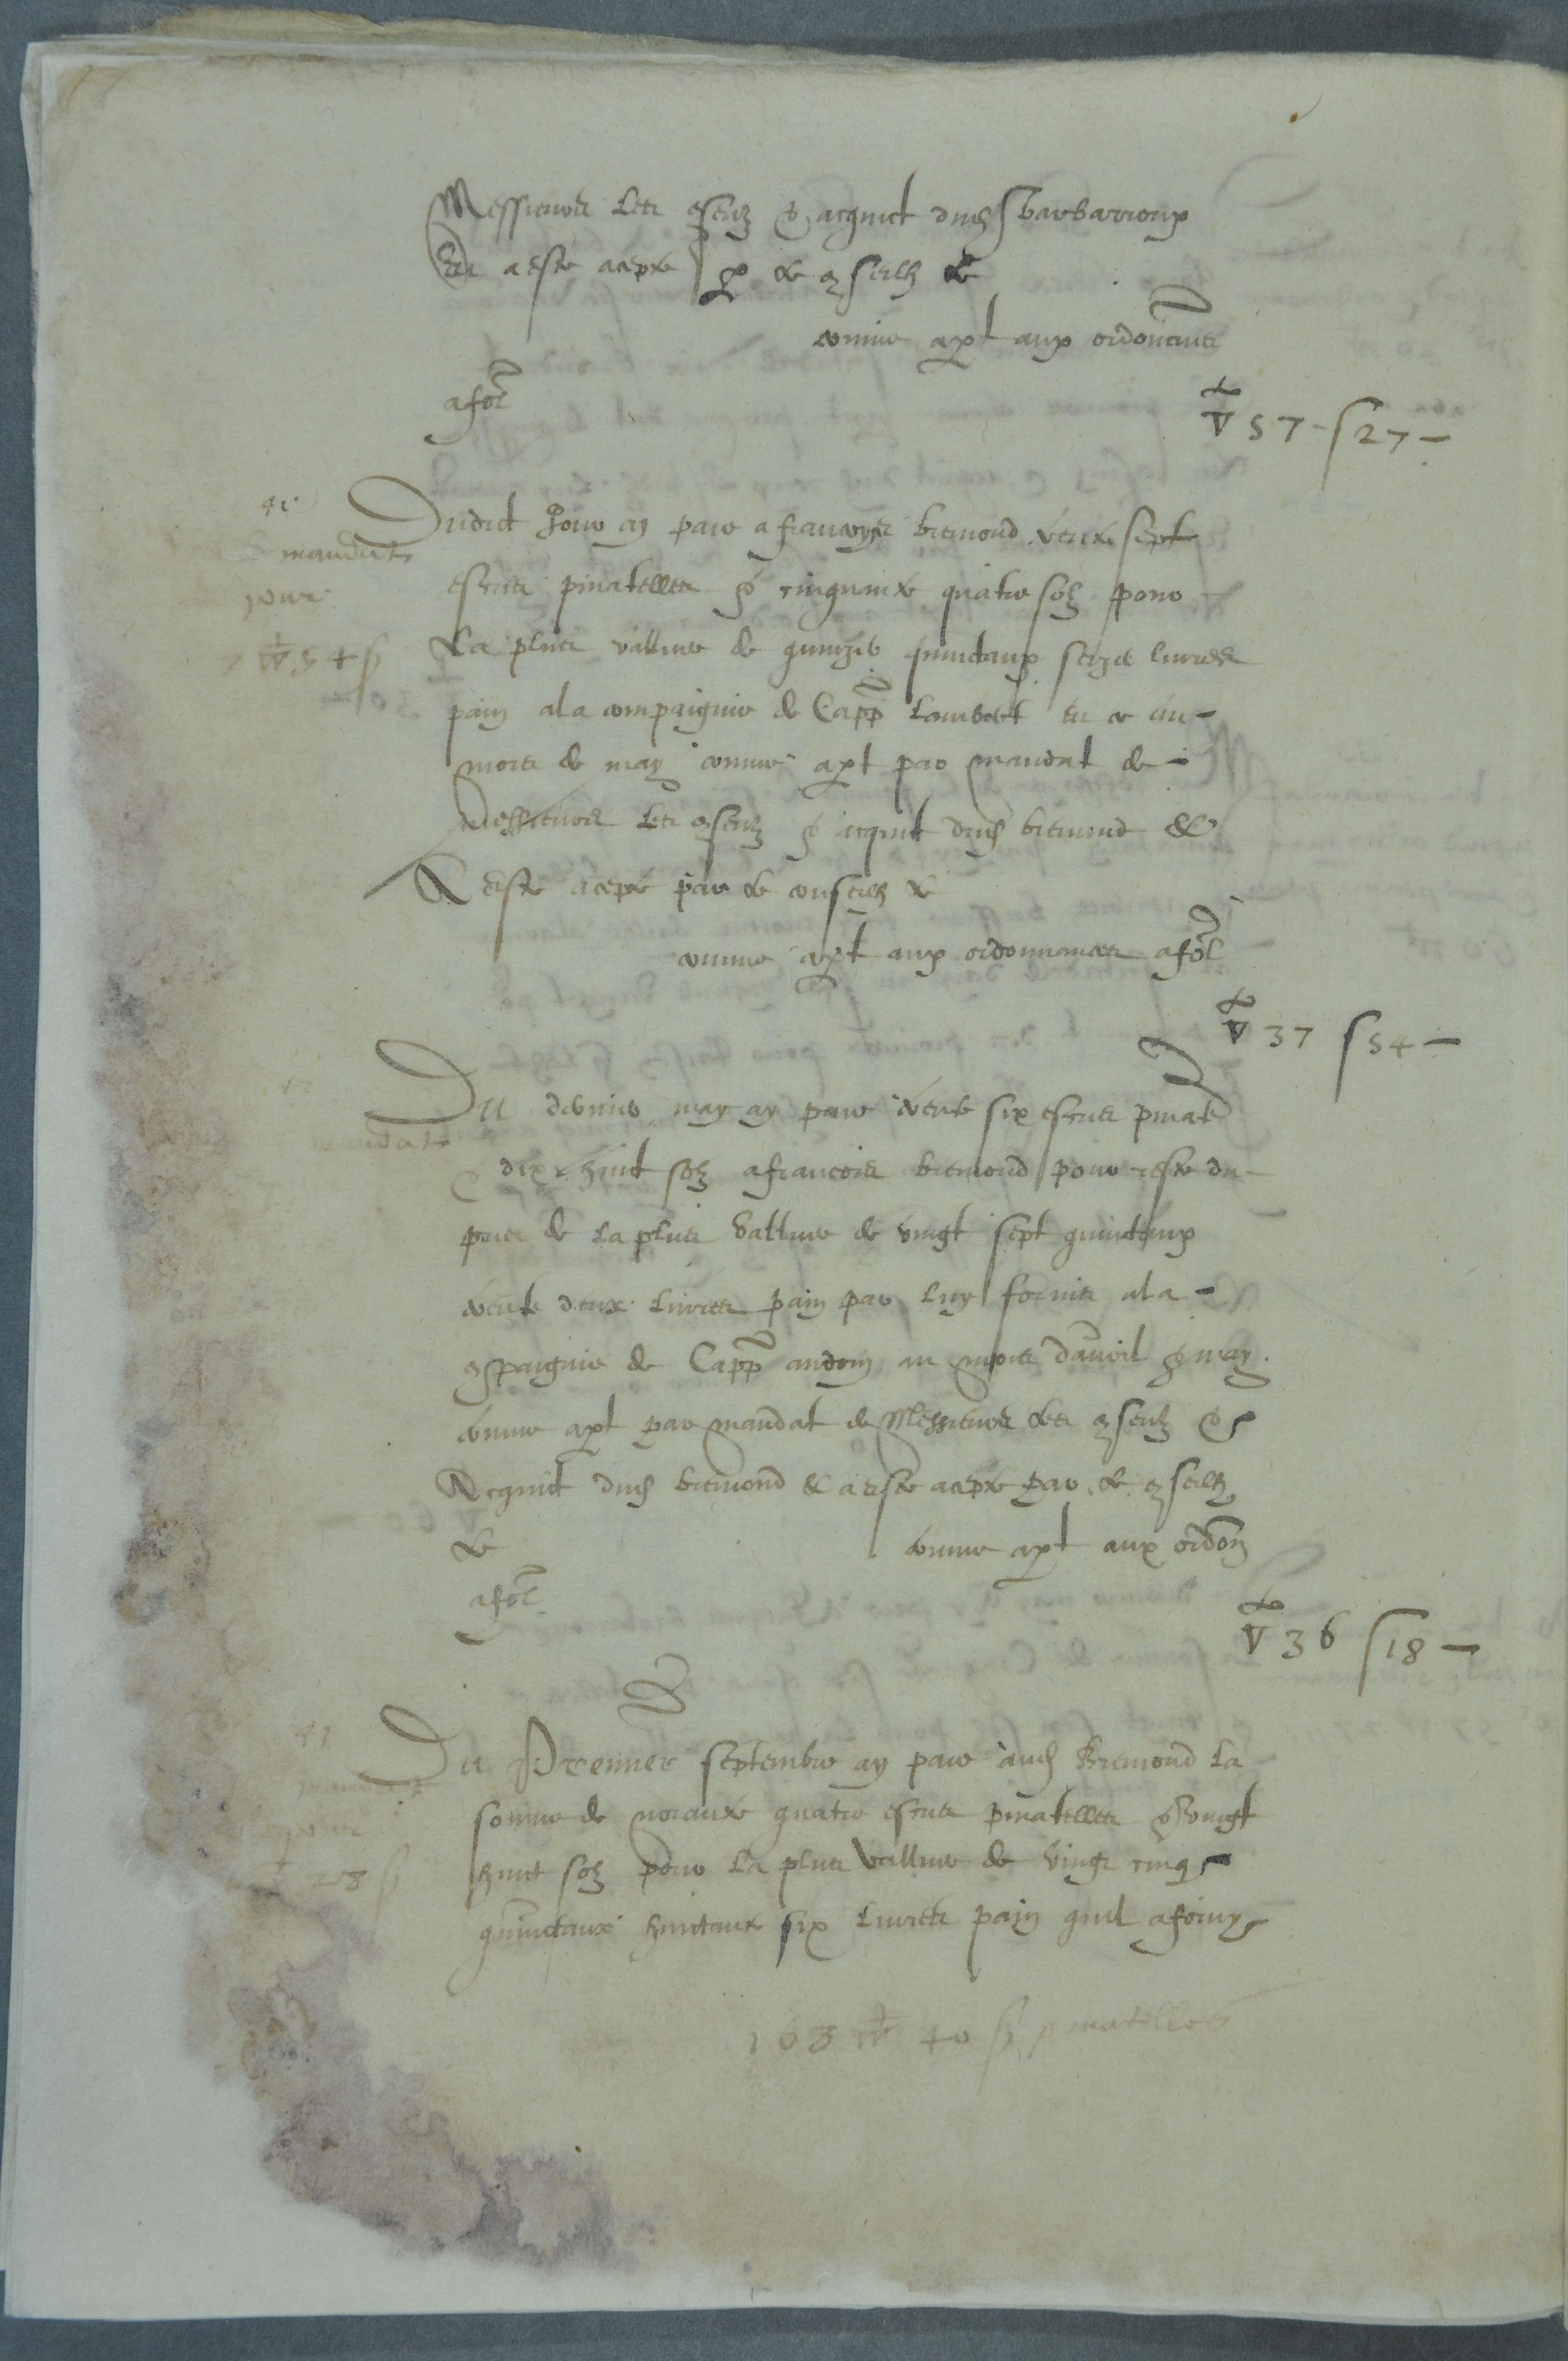 Messieurs les cseulz & acquict dud Barbarroux
Et a esté acepté p le conseilh &
comme apt aux ordonances
a fol
▽ 57 - s 27 -
41
mandat
pour
▽ 54 s
Dudict jour ay paié a francoys bremond trente sept
escus pinatelles & cinquante quatre solz pour
la plus vallue de quinze quintaux seize livres
pain a la compaignie de Capp Lambert en ce du
mois de may comme apt par mandat de
Messieurs les cseulz & acquit dud bremond &
A esté acepté par le conseilh &
comme apt aux ordonnances a fol
▽ 37 s 54 -
mandat
Du dernier may ay paié trente six escus pinat
& dix huit solz a francois bremond pour reste du
pris de la plus vallue de vingt sept quintaux
trente deux livres pain par luy fornis a la
cpaignie de Capp andoin au mois d'avril & may
comme apt par mandat de Messieurs les cseulz &
Acquict dud bremond & a esté acepté par le cseilh
le
comme apt aux ordon
a fol
▽ 36 s 18 -
mandat
pour
28 s
Du Premier septembre ay paié aud Bremond la
somme de noiante quatre escus pinatelles & vingt
huict solz pour la plus vallue de vingt cinq
quintaux huictante six livres pain quil a forny
168 ▽ 40 s pinatelles